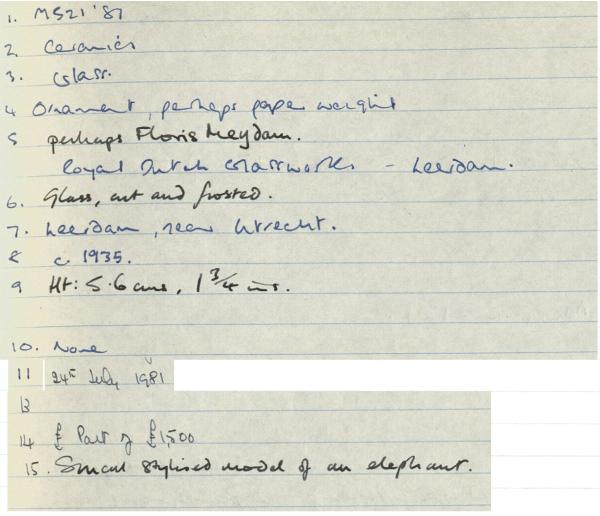 1. MS21 '81
2. Ceramics
3. Glass.
4 Ornament, perhaps paper weight
5 perhaps Floris Meydam.
Royal Dutch Glassworks - Leerdam.
6. Glass, cut and frosted.
7. Leerdam, near Utrecht.
8 c. 1935.
9 Ht: 5.6 cms, 1 3/4 ins.
10. None
11 24th July 1981
13
14 £ Part of £1,500
15. Small stylised model of an elephant.